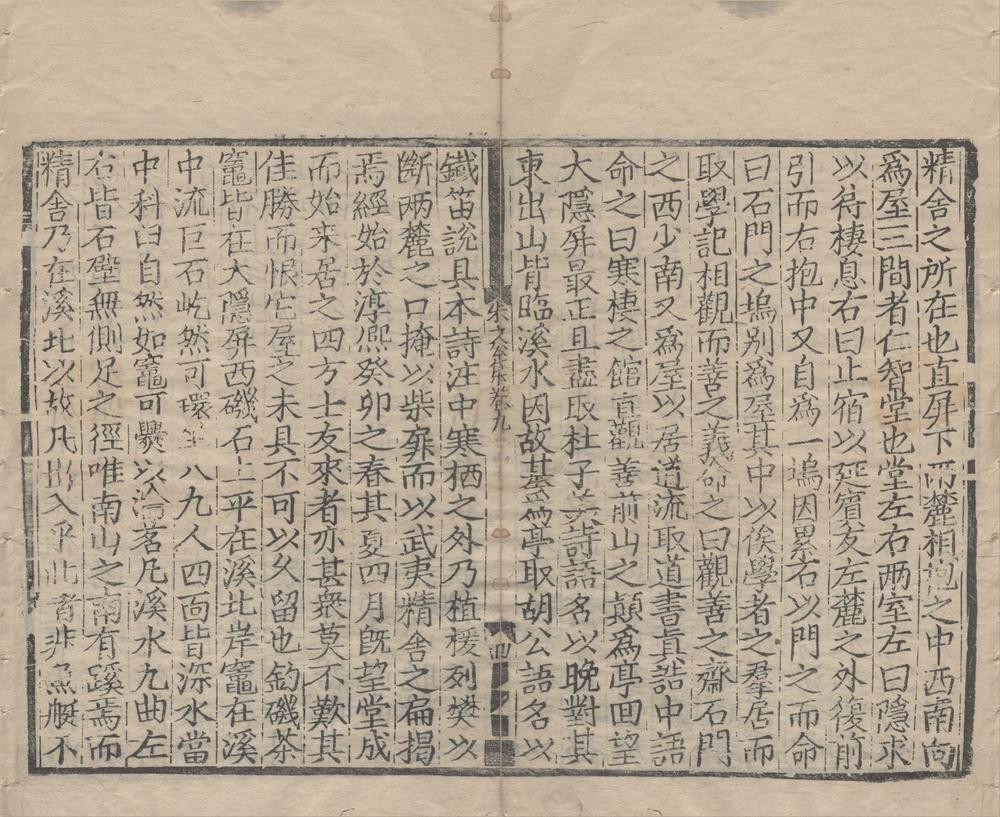 精舍之所在也直屏下兩麓相抱之中西南向
爲屋三間者仁智堂也堂左右兩室左曰隱求
以待棲息右曰止宿以延賓友左麓之外復前
引而右抱中又自爲一塢因累石以門之而命
曰石門之塢别爲屋其中以俟學者之羣居而
取學記相觀而善之義命之曰觀善之齋石門
之西少南又爲屋以居道流取道書眞誥中語
命之曰寒棲之館直觀善前山之顚爲亭回望
大隱屏最正且盡取杜子美詩語名以晚對其
東出山背臨溪水因故基爲亭取胡公語名以
朱文公集卷九
四
鐵笛說具本詩注中寒栖之外乃植楥列樊以
斷两麓之口掩以柴扉而以武夷精舍之扁揭
焉經始於淳熙癸卯之春其夏四月旣望堂成
而始来居之四方士友來者亦甚衆莫不歎其
佳勝而恨它屋之未具不可以久留也釣磯茶
竈皆在大隱屏西磯石上平在溪北岸竈在溪
中流巨石屹然可環八九人四面皆深水當
中科臼自然如竈可爨以瀹茗凡溪水九曲左
右皆石壁無側足之徑唯南山之南有蹊焉而
精舍乃在溪北以故凡出入乎此者非漁艇不